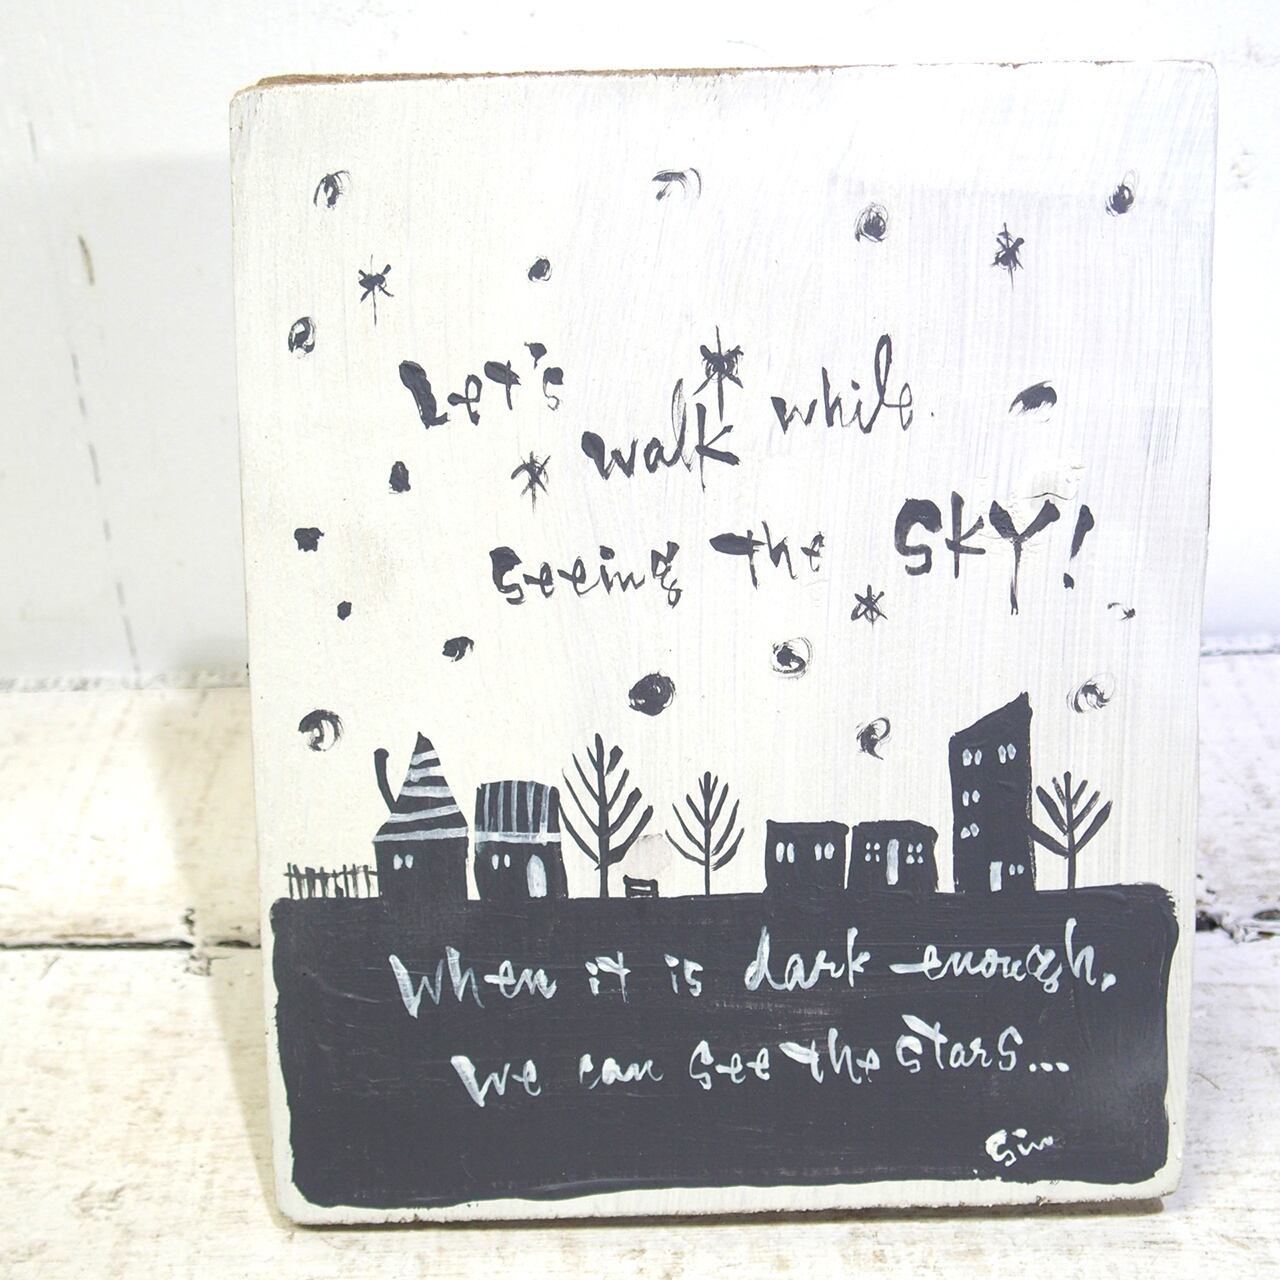 Let's walk while
seeing the SKY!
When it is dark enough,
We can see the stars...
Sin